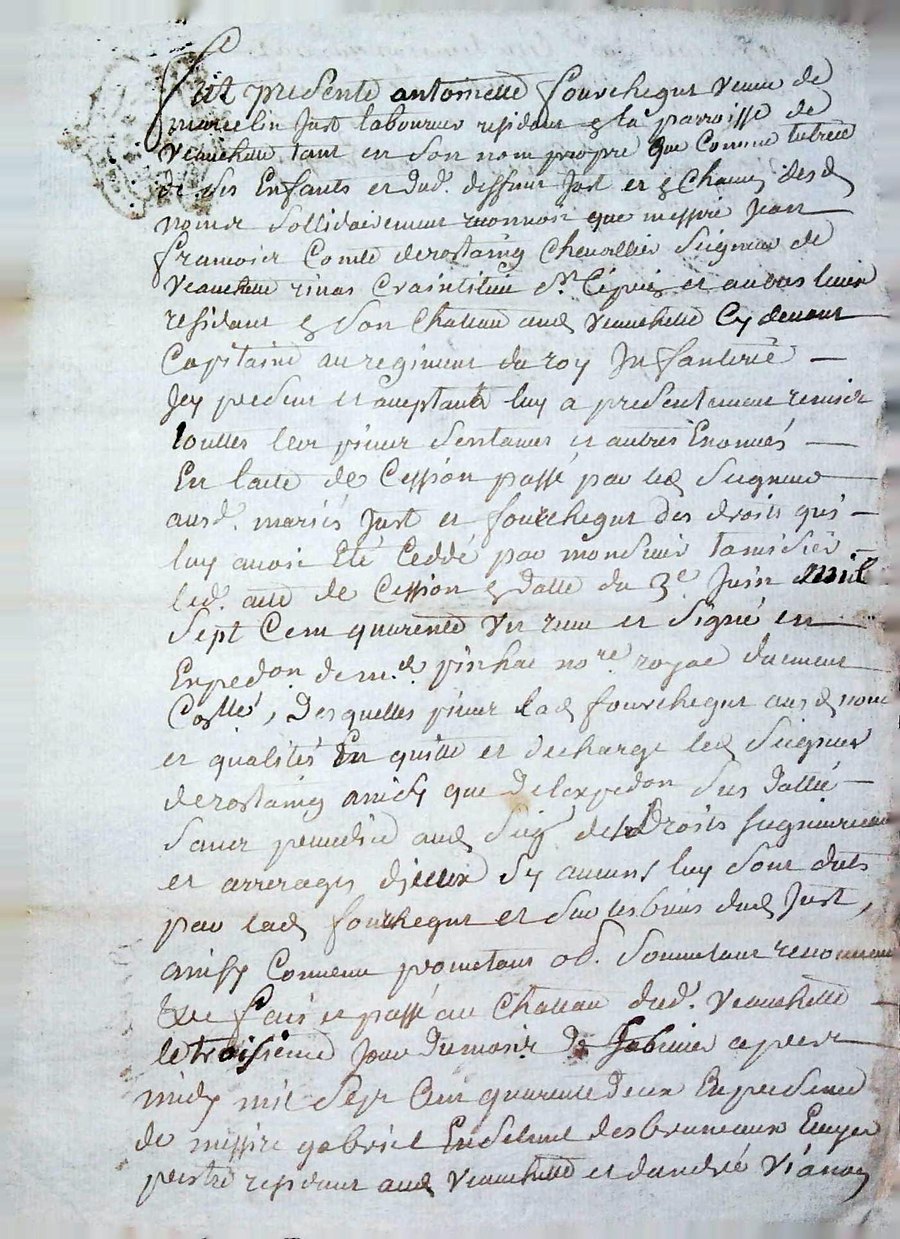 fut presente antoinette fourchegut veuve de
marcelin Just laboureur residant en la parroisse de
Veauchette, tant en son nom propre que Comme tutrice
de ses Enfants et dud. deffunt Just et en chacun desd
noms sollidairement reconnoit que messire Jean
francois Comte derostaing Chevallier Seigneur de
Veauchette rivas Craintilieu St. Cÿprien et autres lieux
residant en son Chateau aud Veauchette Cy devant
Capitaine au regiment du roy Infanterie
Icy present et acceptant luy a presentement remis
touttes les pieces sentances et autres Enoncés
En lacte de Cession passé par led Seigneur
ausd. mariés Just et fourchegut des droits qui
luy avoit Eté Ceddé par monsieur tamisier
led. acte de Cession en datte du 3e. Juin mil
Sept Cent quarente un receu et signé en
Expedon de me. pinhac nore. royal duement
Collé, Desquelles pieces lad fourchegut ausd nom
et qualités En quitte et decharge led Seigneur
derostaing ainsy que de lexpedon sus dattée
sans prejudice aud seigr des Droits seigneuriaux
et arrerages diceux sy aucuns luy sont duts
par lad fourchegut et sur les biens dud Just,
ainsy Convenu prometant ob. soumetant renoncant
&ce fait et passé au Chateau dud. Veauchette
le troisieme Jour du mois de febvrier apres
midy mil sept Cent quarente deux En presence
de messire gabriel desbruneaux Ecuyer
residant aud Veauchette et dandré Vianay